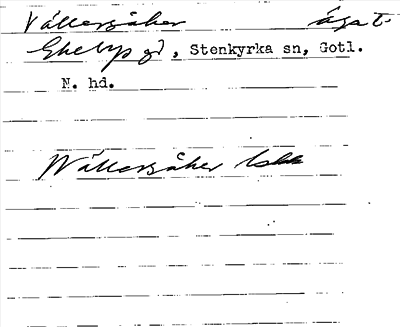 Vällersåker äga t.
Ekeby gd, Stenkyrka sn, Gotl.
N. hd.
Wällersåker